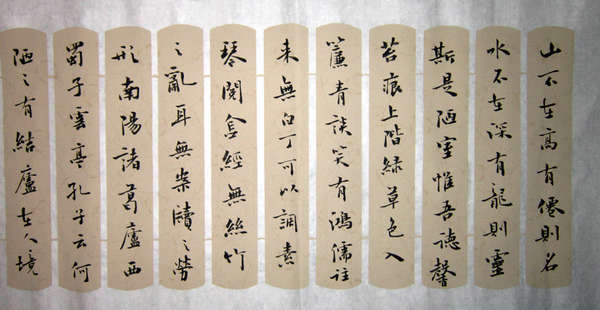 山不在高有僊則名
水不在深有龍則靈
斯是陋室惟吾德馨
苔痕上階緑草色入
簾青談笑有鴻儒往
来無白丁可以調素
琴閱金經無絲竹
之亂耳無案牘之勞
形南陽諸葛廬西
蜀子雲亭孔子云何
陋之有結廬在人境